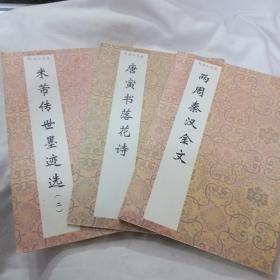 米芾传世墨迹选（二）
唐寅书落花诗
两周秦汉金文